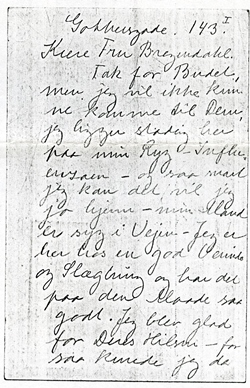 Gothersgade. 143 I
Kære Fru Bregendahl.
Tak for Budet,
men jeg vil ikke kun-
ne komme til Dem,
jeg ligger stadig her
paa min Ryg – Influ-
enzaen – og saa snart
jeg kan det, vil jeg
jo hjem – min Mand
er syg i Vejen – Jeg er
her hos en god Veninde
og Slægtning og har det
paa den Maade saa
godt. Jeg blev glad
for Deres Hilsen – for
saa kunde jeg da